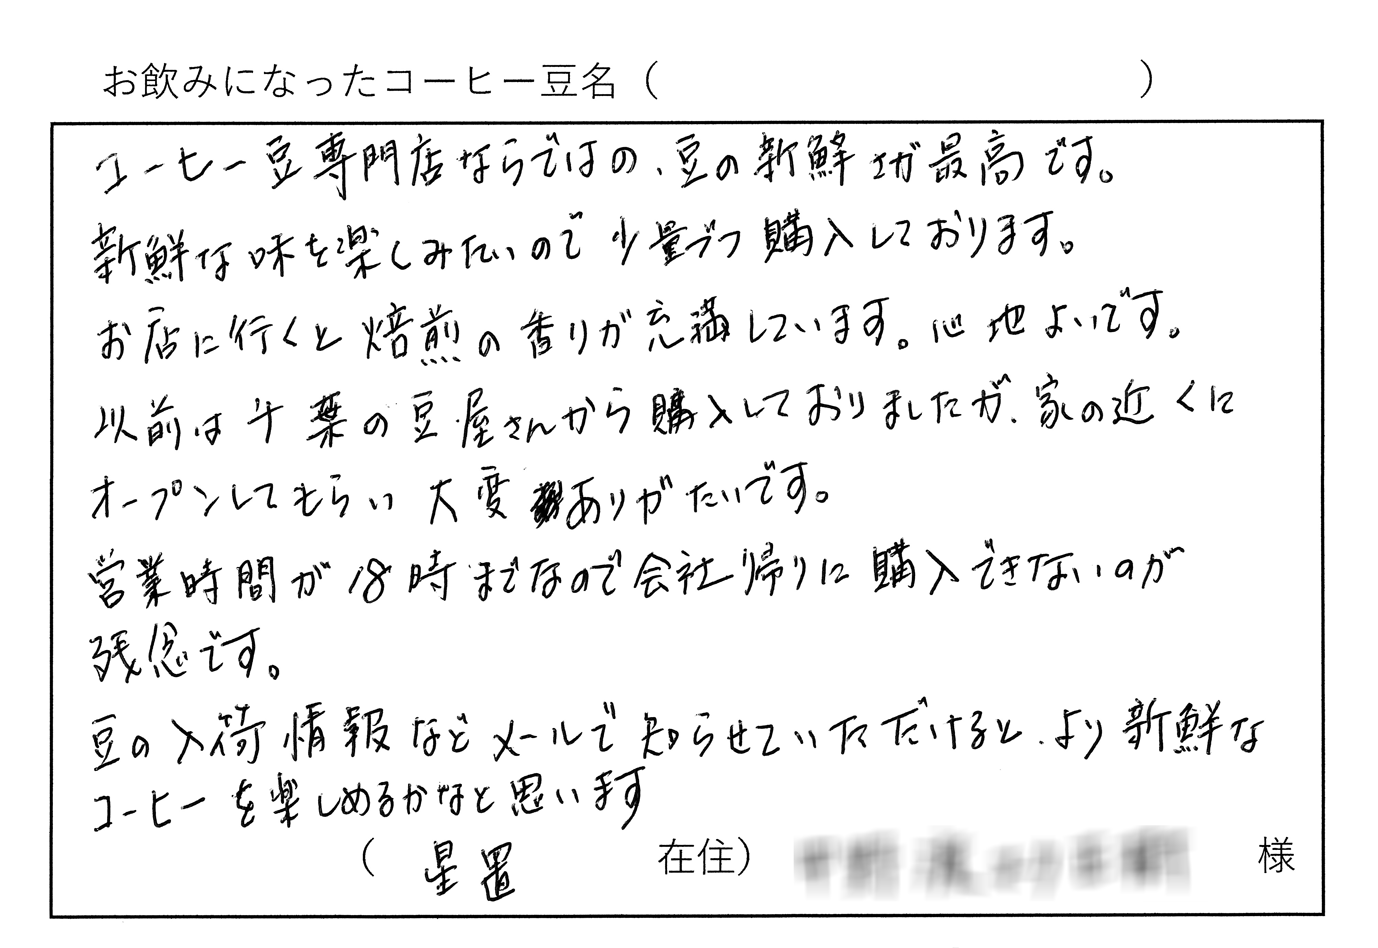 お飲みになったコーヒー豆名（　　　　　　　　　　　　）
コーヒー豆専門店ならではの、豆の新鮮さが最高です。
新鮮な味を楽しみたいので少量づつ購入しております。
お店に行くと焙煎の香りが充満しています。心地よいです。
以前は千葉の豆屋さんから購入しておりましたが、家の近くに
オープンしてもらい大変ありがたいです。
営業時間が18時までなので会社帰りに購入できないのが
残念です。
豆の入荷情報などメールで知らせていただけると、より新鮮な
コーヒーを楽しめるかなと思います
（　星置　在住）　様